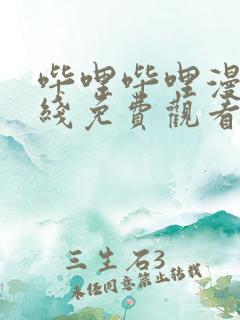 哔哩哔哩漫
线免費觀看
三生石3
未经同意禁止转载